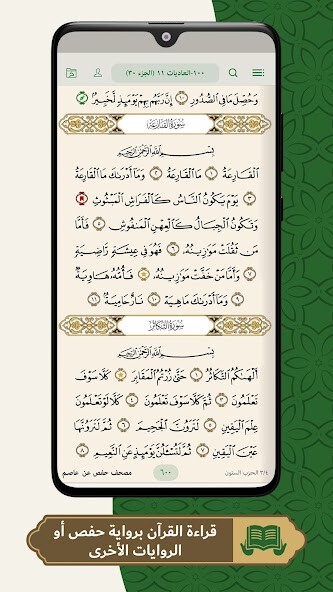 ١٠٠-العاديات ١١ (الجزء ٣٠)
وَحُصِّلَ مَا فِي ٱلصُّدُورِ ١٠ إِنَّ رَبَّهُم بِهِمْ يَوْمَئِذٍ لَّخَبِيرٌۢ ١١
سُورَةُ القَارِعَةِ
بِسْمِ ٱللَّهِ ٱلرَّحْمَٰنِ ٱلرَّحِيمِ
ٱلْقَارِعَةُ ١ مَا ٱلْقَارِعَةُ ٢ وَمَآ أَدْرَىٰكَ مَا ٱلْقَارِعَةُ
٣ يَوْمَ يَكُونُ ٱلنَّاسُ كَٱلْفَرَاشِ ٱلْمَبْثُوثِ
وَتَكُونُ ٱلْجِبَالُ كَٱلْعِهْنِ ٱلْمَنفُوشِ ٥ فَأَمَّا
مَن ثَقُلَتْ مَوَٰزِينُهُۥ ٦ فَهُوَ فِي عِيشَةٍ رَّاضِيَةٍ
٧ وَأَمَّا مَنْ خَفَّتْ مَوَٰزِينُهُۥ ٨ فَأُمُّهُۥ هَاوِيَةٌ
٩ وَمَآ أَدْرَىٰكَ مَا هِيَهْ ١٠ نَارٌ حَامِيَةٌۢ ١١
سُورَةُ التَّكَاثُرِ
بِسْمِ ٱللَّهِ ٱلرَّحْمَٰنِ ٱلرَّحِيمِ
أَلْهَىٰكُمُ ٱلتَّكَاثُرُ ١ حَتَّىٰ زُرْتُمُ ٱلْمَقَابِرَ ٢ كَلَّا سَوْفَ
تَعْلَمُونَ ٣ ثُمَّ كَلَّا سَوْفَ تَعْلَمُونَ ٤ كَلَّا لَوْ تَعْلَمُونَ
عِلْمَ ٱلْيَقِينِ ٥ لَتَرَوُنَّ ٱلْجَحِيمَ ٦ ثُمَّ لَتَرَوُنَّهَا
عَيْنَ ٱلْيَقِينِ ٧ ثُمَّ لَتُسْـَٔلُنَّ يَوْمَئِذٍ عَنِ ٱلنَّعِيمِ ٨
مصحف حفص عن عاصم ٦٠٠ ٣/٤ الحزب الستون
قراءة القرآن برواية حفص أو
الروايات الأخرى